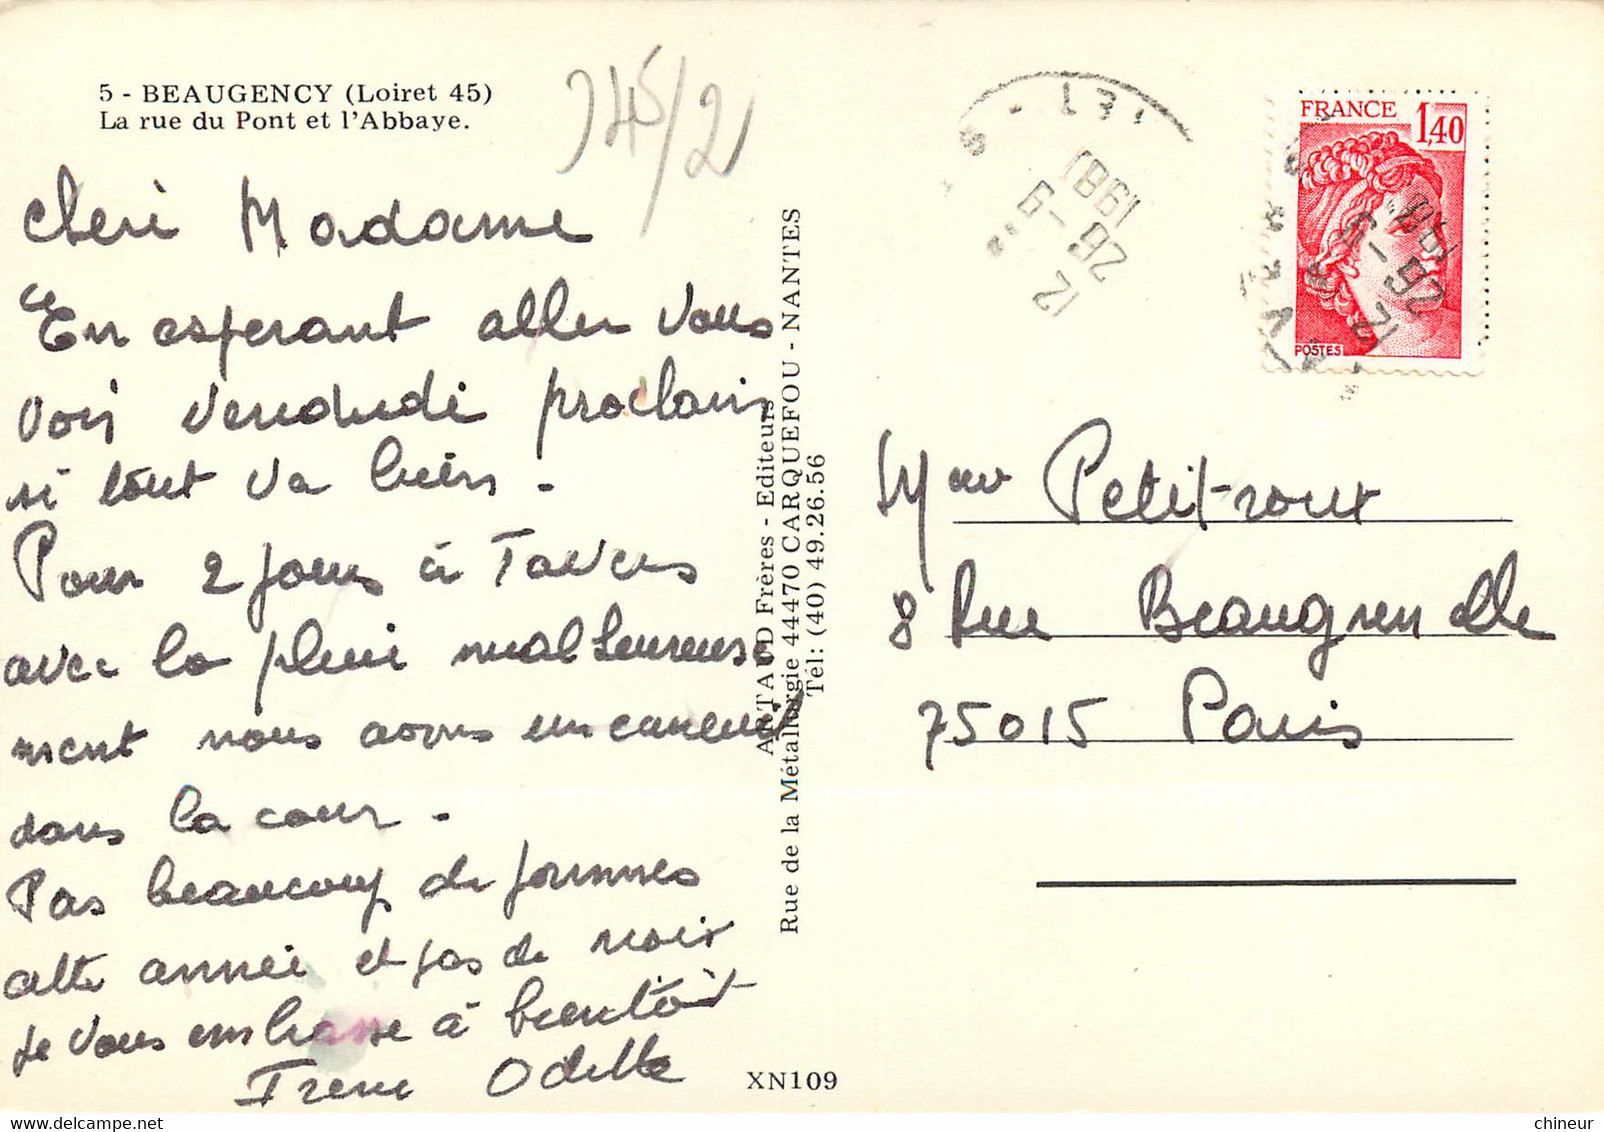 5 - BEAUGENCY (Loiret 45)
La rue du Pont et l'Abbaye.
345/2
cheri Madame
En esperant aller vous
voir vendredi prochain
si tout va bien.
Pour 2 jours à Tavers
avec la pluie malheureuse
ment nous avons un
dans la cour.
Pas beaucoup de pommes
cette année et pas de noix
je vous embrasse à bientôt
Irene Odette
ARTAUD Frères - Editeurs
Rue de la Métallurgie 44470 CARQUEFOU - NANTES
Tél: (40) 49.26.56
XN109
FRANCE
1,40
POSTES
12
26 - 9
1981
12
26 - 9
Mme Petit-roux
8 Rue Beaugrenelle
75015 Paris
chineur